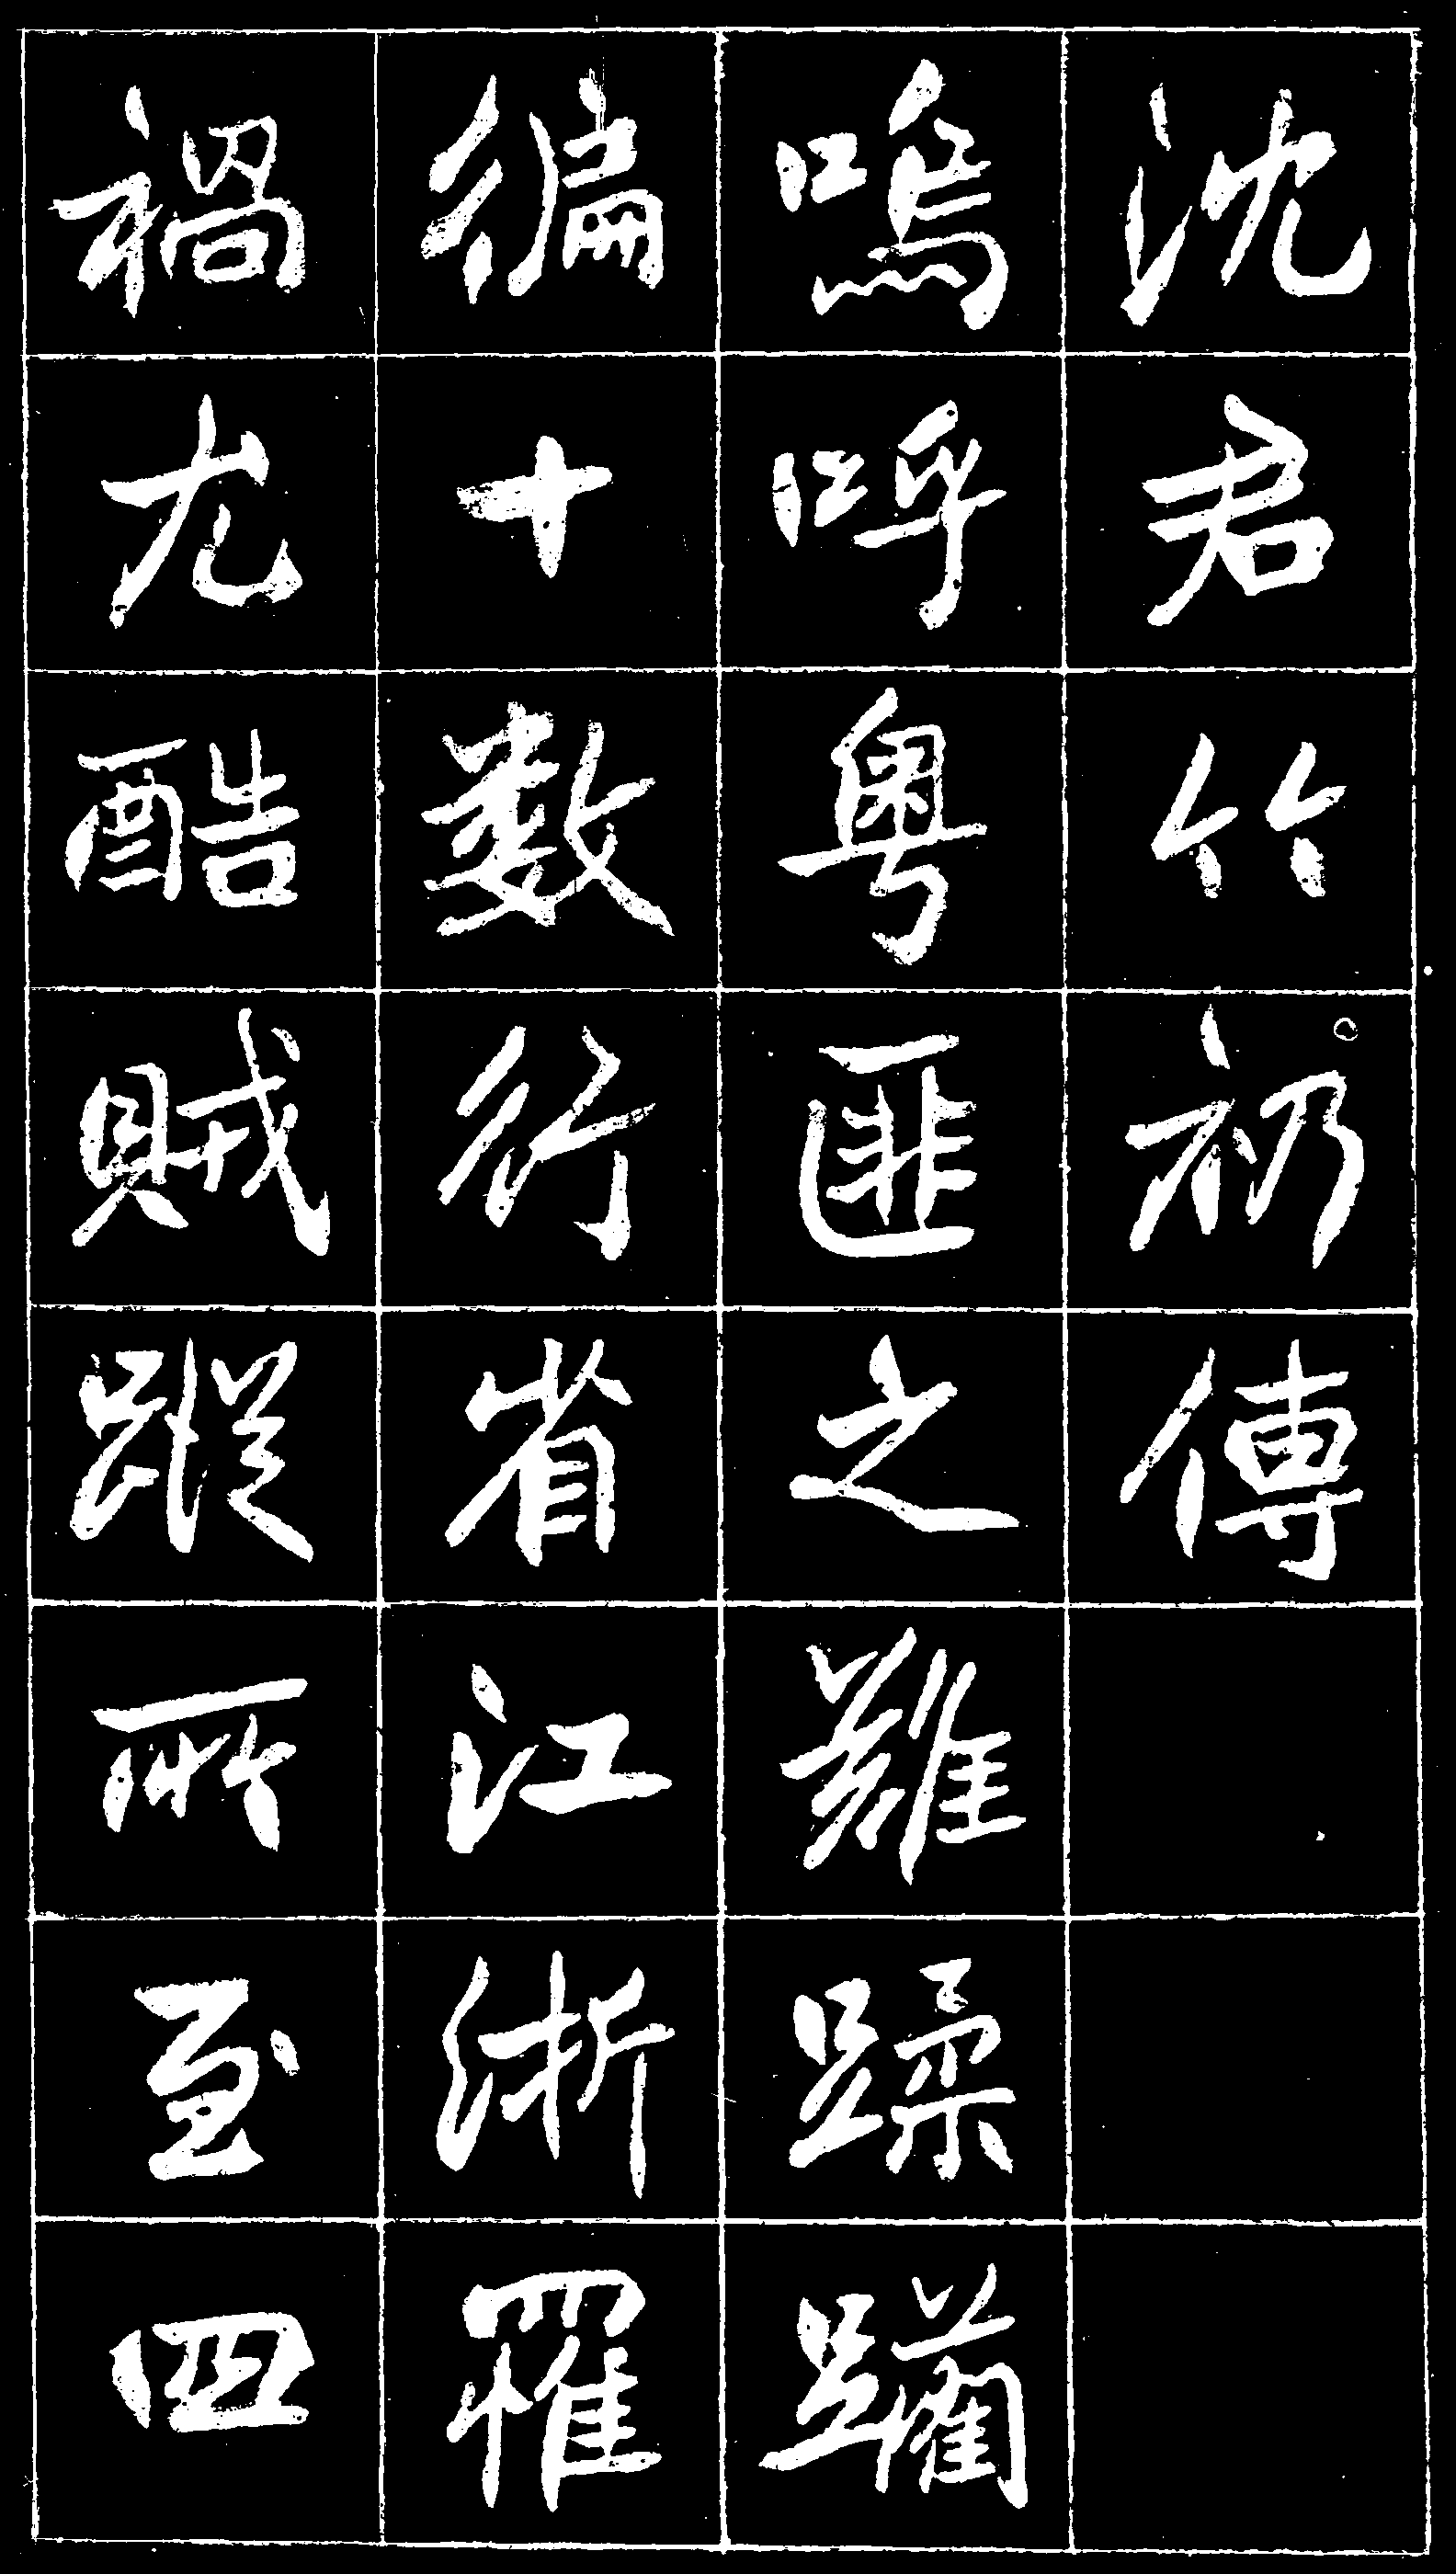 沈君竹礽傳
嗚呼粤匪之難蹂躪
徧十數行省江浙罹
禍尤酷賊蹤所至四